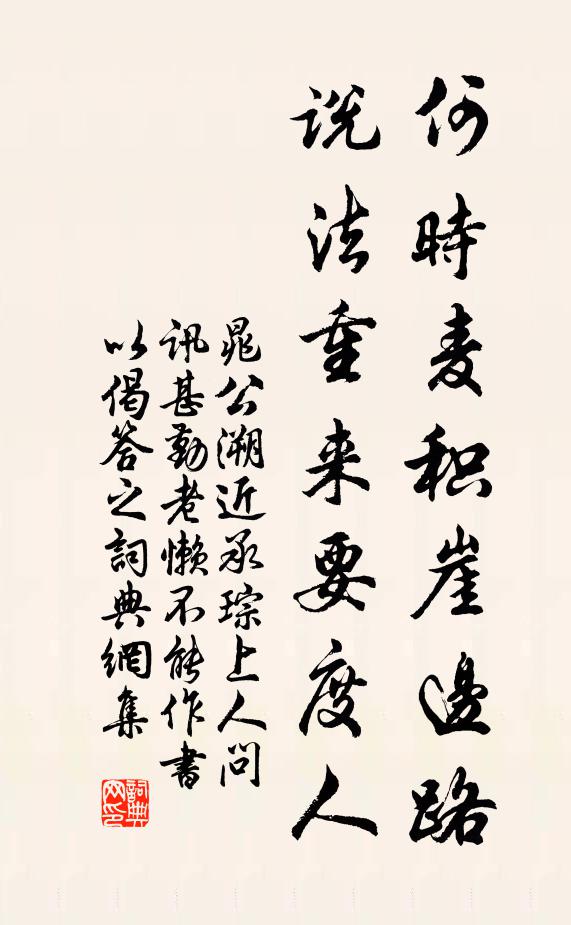 何時麦积崖邊路
説法重来要度人
晁公溯近承琮上人問
訊甚勤老懶不能作書
以偈答之詞典網集
詞典网印